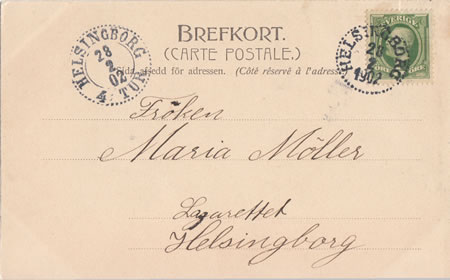 BREFKORT.
(CARTE POSTALE.)
Sida afsedd för adressen. (Côté réservé à l'adresse
HELSINGBORG
28
2
02
4 TUR
SVERIGE
HELSINGBORG
28
2
1902
Fröken
Maria Möller
Lazarettet
Helsingborg